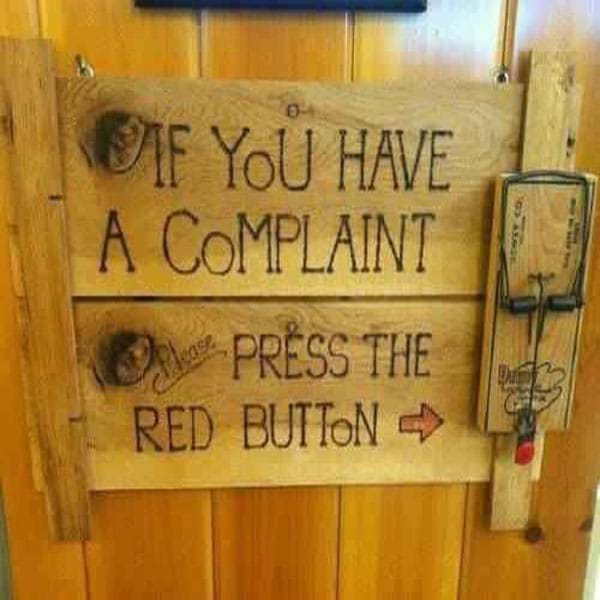 IF YoU HAVE
A CoMPLAINT
Please PRESS THE
RED BUTToN